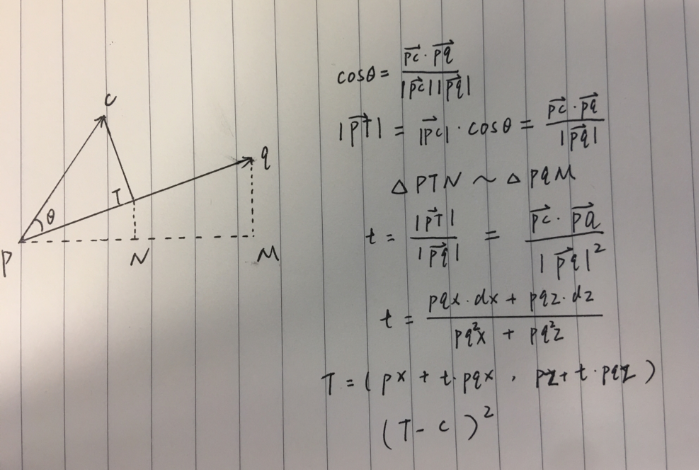 C
q
T
θ
P
N
M
cosθ = \frac{\vec{pc} · \vec{pq}}{|\vec{pc}| |\vec{pq}|}
|\vec{PT}| = |\vec{pc}| · cosθ = \frac{\vec{pc} · \vec{pq}}{|\vec{pq}|}
△PTN ~ △PqM
t = \frac{|\vec{PT}|}{|\vec{pq}|} = \frac{\vec{pc} · \vec{pq}}{|\vec{pq}|^2}
t = \frac{pqx · dx + pqz · dz}{pq^2x + pq^2z}
T = (px + t · pqx , pz + t · pqz)
(T - c)^2